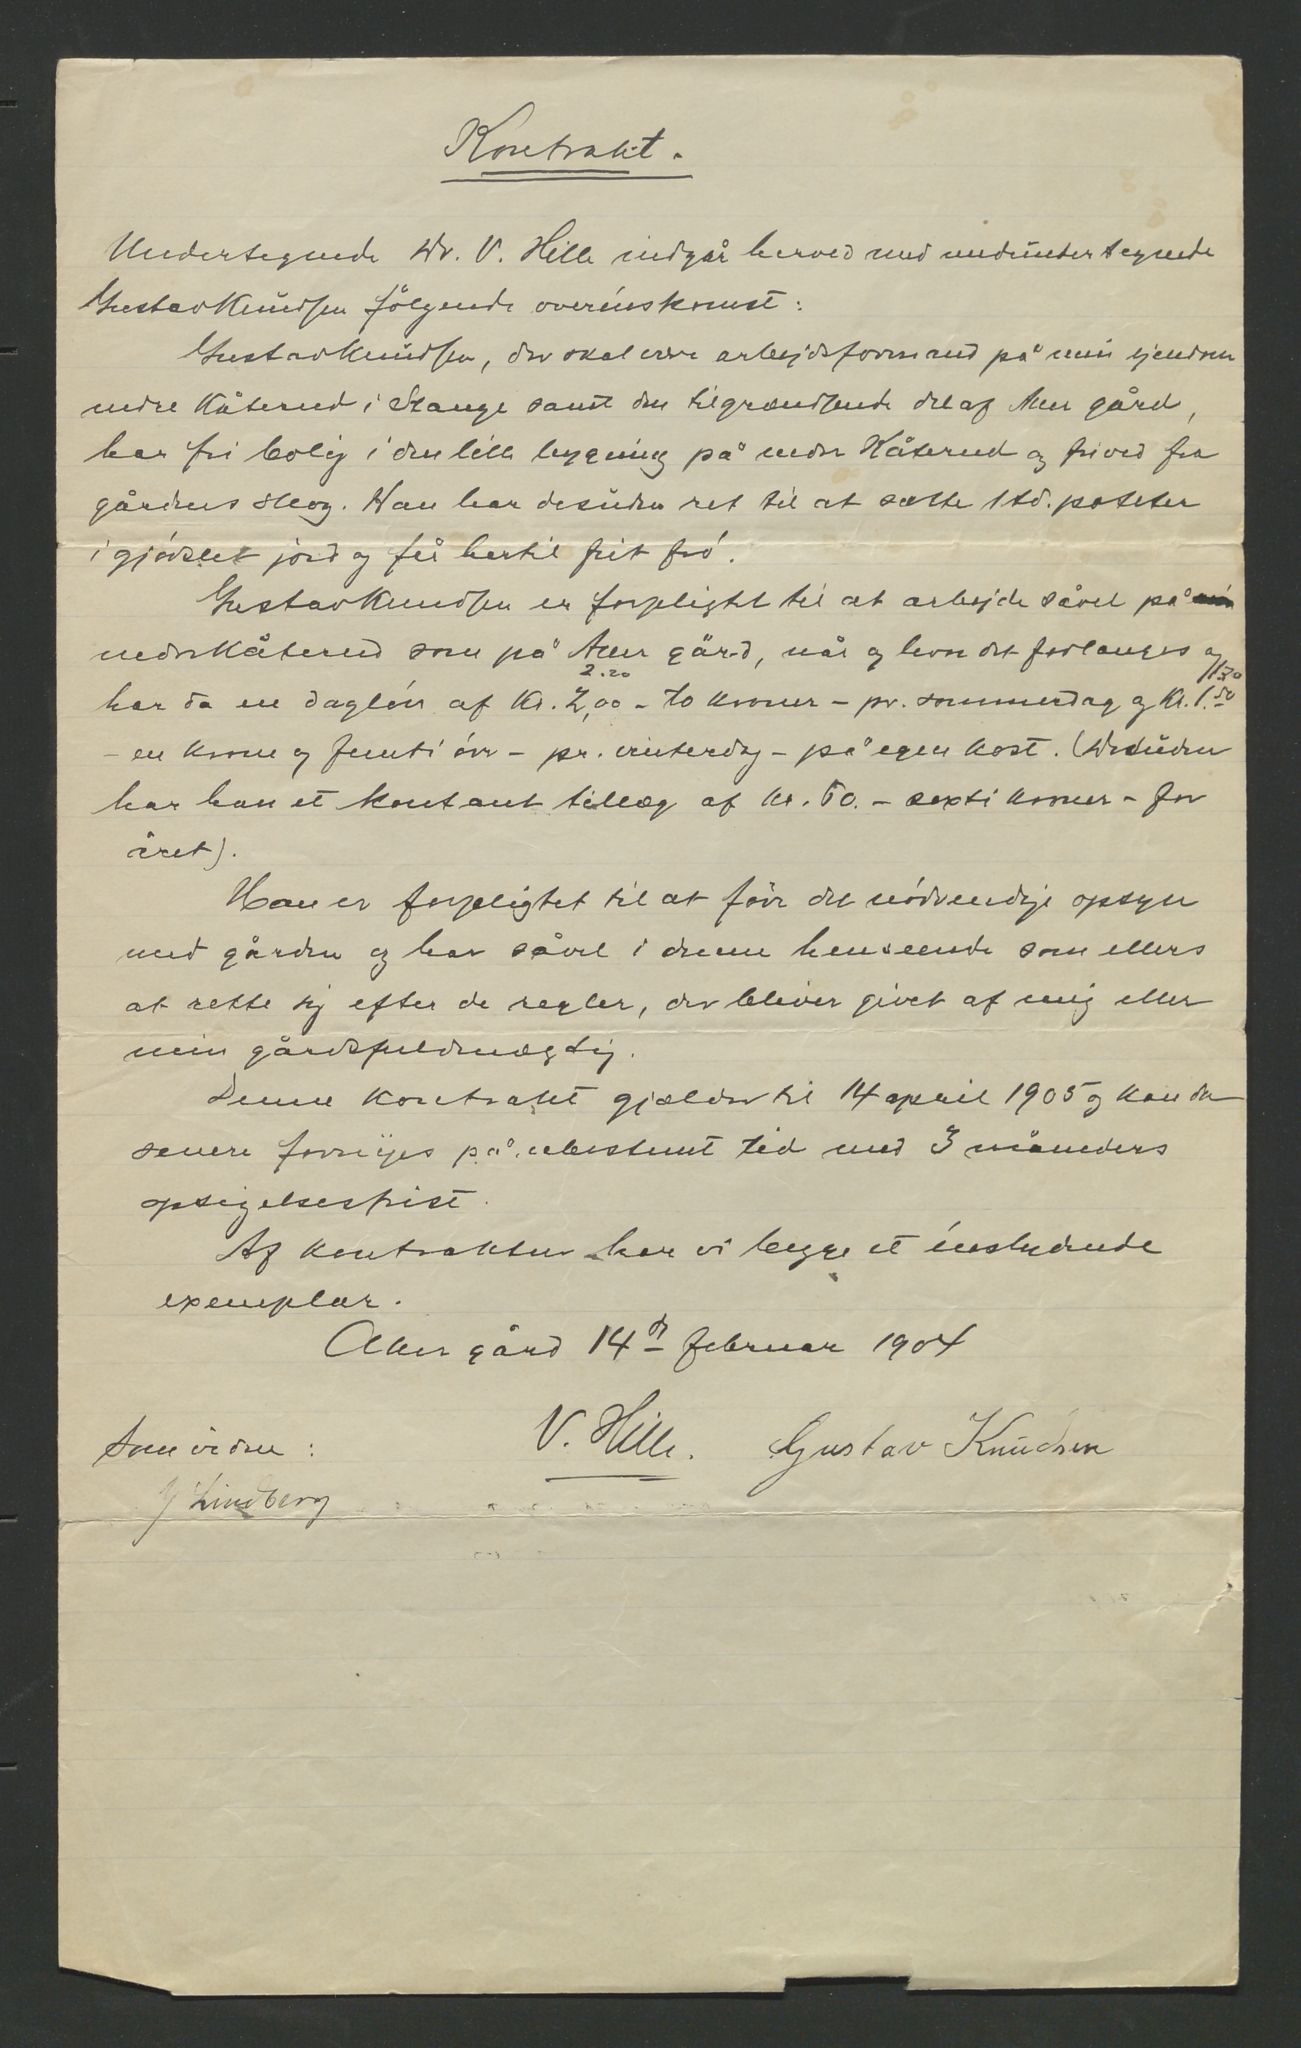 Kontrakt.
Undertegnede Dr. V. Hille indgår herved med medundertegnede
Gustav Knudsen følgende overénskomst:
Gustav Knudsen, der skal være arbejdsformand på min ejendom
nedre Kåterud i Stange samt den tilgrændsende del af Aker gård,
har fri bolig i den lille bygning på nedre Kåterud og fri ved fra
gårdens skog. Han har desuden ret til at sætte 1 td. poteter
i gjødslet jord og får hertil frit frø.
Gustav Knudsen er forpligtet til at arbejde såvel på
nedre Kåterud som på Aker gård, når og hvor det forlanges og
2.20
har da en dagløn af Kr. 2,00 – to kroner – pr. sommerdag og Kr. 1.50
– en krone og femti øre – pr. vinterdag – på egen kost. (Desuden
har han et kontant tillæg af Kr. 60. – sexti kroner – for
året).
Han er forpligtet til at føre det nødvendige opsyn
med gården og har såvel i denne henseende som ellers
at rette sig efter de regler, der bliver givet af mig eller
min gårdsfuldmægtig.
Denne kontrakt gjælder til 14 april 1905 og kan da
senere fornyes på ubestemt tid med 3 måneders
opsigelsesfrist.
Af kontrakten har vi begge et énslydende
exemplar.
Aker gård 14 de februar 1904
V. Hille. Gustav Knudsen
Som vidne:
Lindberg